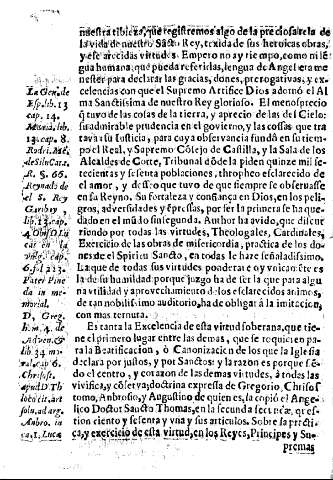 nuestra tibieza, que registremos algo de la preciosa tela de
la vida de nuestro Sãcto Rey, texida de sus heroicas obras,
y esclarecidas virtudes. Empero no ay tiempo, como ni lé
gua humana, que pueda referirlas, lengua de Angel era me
nester para declarar las gracias, dones, prerogativas, y ex-
celencias con que el Supremo Artifice Dios adornó el Al
ma Sanctissima de nuestro Rey glorioso. El menosprecio
q̃ tuvo de las cosas de la tierra, y aprecio de las del Cielo:
su admirable prudencia en el govierno, y las cosas que tra
tava su Iusticia, para cuya observancia fundó en su tiem-
po el Real, y Supremo Cõsejo de Castilla, y la Sala de los
Alcaldes de Corte, Tribunal dõde la piden quinze mil se-
tecientas y sesenta poblaciones, thropheo esclarecido de
el amor, y desseo que tuvo de que siempre se observasse
en su Reyno. Su fortaleza y confiança en Dios, en los peli-
gros, adversidades y
por ser la primera se ha que-
dado en el mũdo sin segunda. Author ha avido, que discur
riendo por todas las virtudes, Theologales, Cardinales,
Exercicio de las obras de misericordia, practica de los do-
nes del Spiritu Sancto, en todas le haze señaladissimo.
La que de todas sus virtudes ponderaré oy unicamẽte es
la de su humildad porque juzgo ha de ser la para alguna
na utilidad y aprovechamiento de los esclarecidos animos,
de tan nobilissimo auditorio, ha de obligar á la imitacion,
con mas ternura.
Es tanta la Excelencia de esta virtud soberana, que tie
ne el primero lugar entre las demas, que se requieren pa-
ra la Beatificacion, ó Canonizacion de los que la Iglesia
declara por justos, y por Sanctos: y la razon es porque siẽ-
do el centro, y corazon de las demas virtudes, á todas las
vivifica, y cõserva; doctrina expressa de Gregorio, Chrisos
tomo, Ambrosio, y Augustino de quienes, la copió el Ange-
lico Doctor Sancto Thomas, en la secunda secundæ, quæs-
tion ciento y sesenta y una y sus articulos. Sobre la prácti-
ca, y exercicio de esta virtud, en los Reyes, Principes y Su-
premas
La Gen. de
Esp. lib. 13
cap. 14.
Mariana, lib.
13. cap. 8.
Rodri. Mẽd.
de Sil. Cata.
R. S. 66.
Reynado de
el S. Rey
Garibay
lib. 13. cap.
6. fol. 223.
Pater Pine
da in me-
morial.
D. Greg.
hom. 4. de
Adven. &
lib. 34. mo-
ral. cap. 6.
Chrisos.
apud D. Th
loco cit. art
solu. ad arg.
Ambro. in
ca. 1. Lucæ